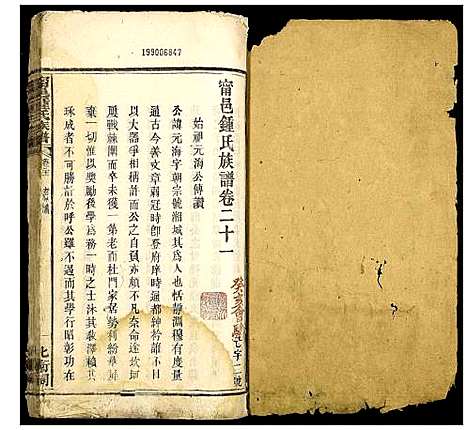 199006847
甯邑鍾氏族譜卷二十一
始祖元海公傳讚
公諱元海字朝宗號湘城其為人也恬靜淵穆有度量
通古今善文章弱冠時卽登府庠時通都紳衿諸不
以大器爭相矜許而公之自負亦頗不奈命途坎坷
鏖戰棘圍而卒未獲一第老而杜門家居勢利紛華屏
棄一切惟以奬勵後學為務一時之士沐其敎澤賴其
珠成者不可勝計於呼公雖不遇而其學行昭彰功在
甯邑鍾氏族譜
卷二十一
七宇二號